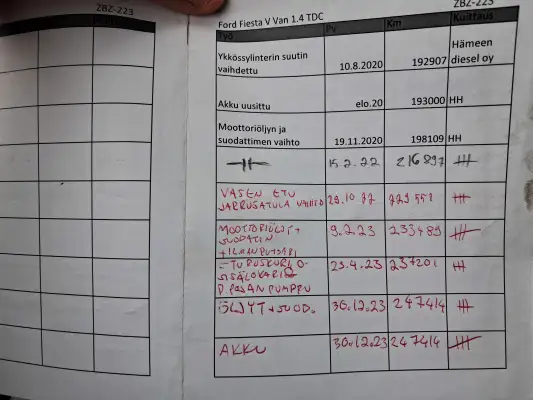 ZBZ-223
ZBZ-223
Ford Fiesta V Van 1.4 TDC
Työ Pv Km Kuittaus
Ykkössylinterin suutin vaihdettu 10.8.2020 192907 Hämeen diesel oy
Akku uusittu elo.20 193000 HH
Moottoriöljyn ja suodattimen vaihto 19.11.2020 198109 HH
—||— 15.2.22 216897 HH
VASEN ETU JARRUSATULA 29.10.22 229551 HH
MOOTTORIÖLJY + SUODATIN 9.2.23 233489 HH
ETUPUSKURI O- SISÄLOKARI P. PESÄN PUMPPU 23.4.23 237201 HH
ÖLJYT + SUOD. 30.12.23 247414 HH
AKKU 30.12.23 247414 HH